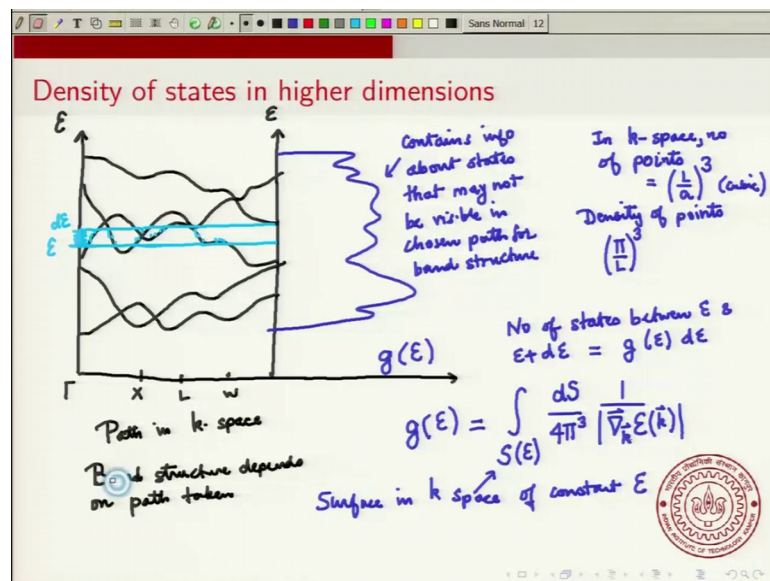 Sans Normal 12
Density of states in higher dimensions
ε
ε
dε
ε
Γ
X
L
W
g(ε)
Path in k-space
Band structure depends
on path taken
Contains info
about states
that may not
be visible in
chosen path for
band structure
In k-space, no
of points
= (L/a)³ (cubic)
Density of points
(π/L)³
No of states between ε &
ε+dε = g(ε) dε
g(ε) = ∫S(ε) dS/4π³ 1/|∇⃗k⃗ ε(k⃗)|
Surface in k space of constant ε
INDIAN INSTITUTE OF TECHNOLOGY KANPUR